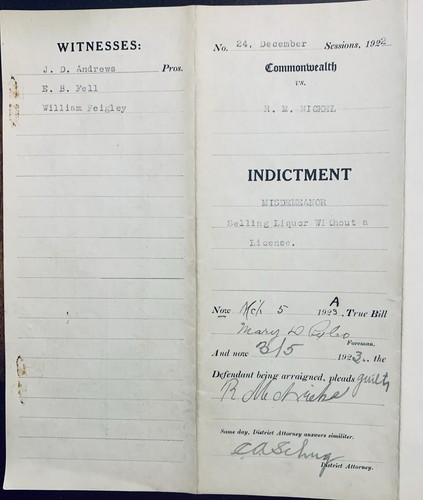 WITNESSES:
J. D. Andrews Pros.
E. B. Fell
William Feigley
No. 24, December Sessions, 1922
Commonwealth
vs.
R. M. NICKEL
INDICTMENT
MISDEMEANOR
Selling Liquor Without a
License.
Now 5 1923, A True Bill
Mary D.
Foreman.
And now 3/5 1923.. the
Defendant being arraigned, pleads guilty
R M
Same day, District Attorney answers similiter.
District Attorney.